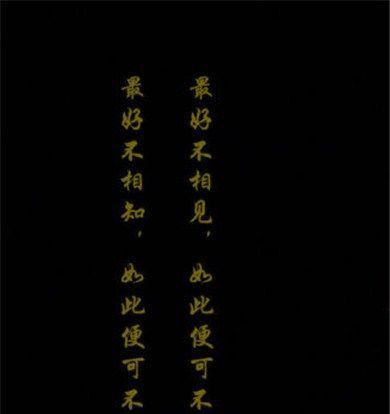 最好不相见，如此便可不
最好不相知，如此便可不